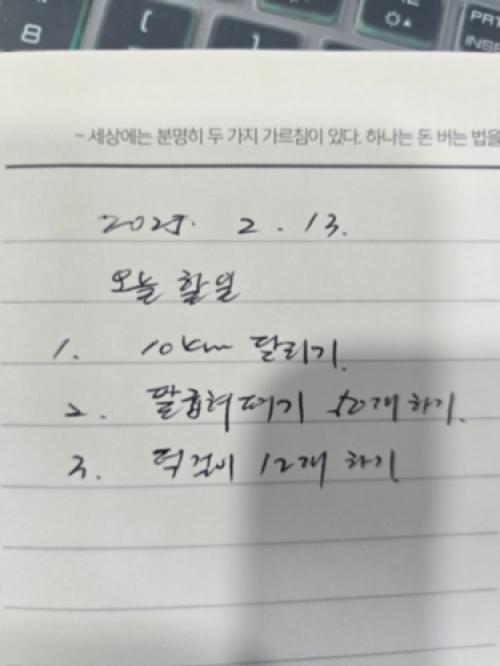 8
[
{
PRT
INS
- 세상에는 분명히 두 가지 가르침이 있다. 하나는 돈 버는 법을
2025. 2. 13.
오늘 할일
1. 10km 달리기.
2. 팔굽혀펴기 50개 하기.
3. 턱걸이 12개 하기